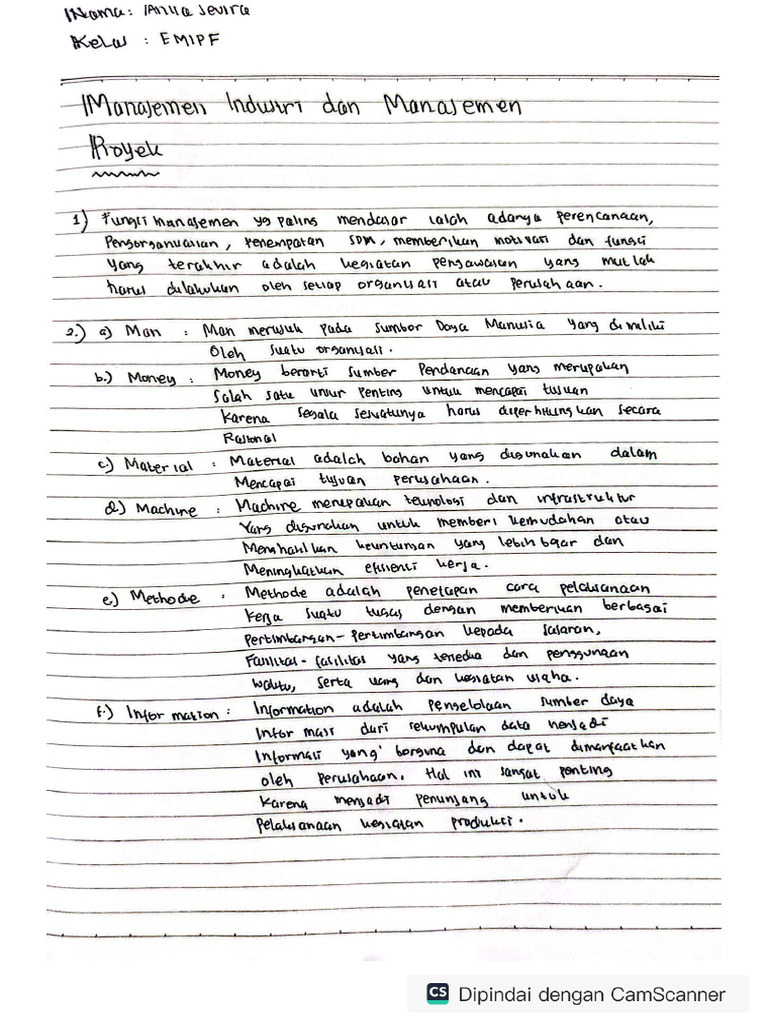 Nama: Anya Sevira
Kelas : EMIPF
Manajemen Industri dan Manajemen
Proyek
1) Fungsi manajemen yg paling mendasar ialah adanya perencanaan,
Pengorganisasian, penempatan SDM, memberikan motivasi dan fungsi
yang terakhir adalah kegiatan pengawasan yang mutlak
harus dilakukan oleh setiap organisasi atau perusahaan.
2.) a) Man : Man merujuk pada Sumber Daya Manusia yang dimiliki
Oleh suatu organisasi.
b.) Money : Money berarti sumber Pendanaan yang merupakan
Salah satu unsur penting untuk mencapai tujuan
karena segala sesuatunya harus diperhitungkan secara
Rasional
c.) Material : Material adalah bahan yang digunakan dalam
Mencapai tujuan perusahaan.
d.) Machine : Machine merupakan teknologi dan infrastruktur
Yang digunakan untuk memberi kemudahan atau
Menghasilkan keuntungan yang lebih besar dan
Meningkatkan efisiensi kerja.
e.) Methode : Methode adalah penetapan cara pelaksanaan
kerja suatu tugas dengan memberikan berbagai
pertimbangan-pertimbangan kepada sasaran,
Fasilitas-fasilitas yang tersedia dan penggunaan
waktu, serta uang dan kegiatan usaha.
f.) Information : Information adalah pengelolaan sumber daya
Informasi dari sekumpulan data menjadi
Informasi yang berguna dan dapat dimanfaatkan
oleh perusahaan. Hal ini sangat penting
Karena menjadi penunjang untuk
pelaksanaan kegiatan produksi.
CS Dipindai dengan CamScanner